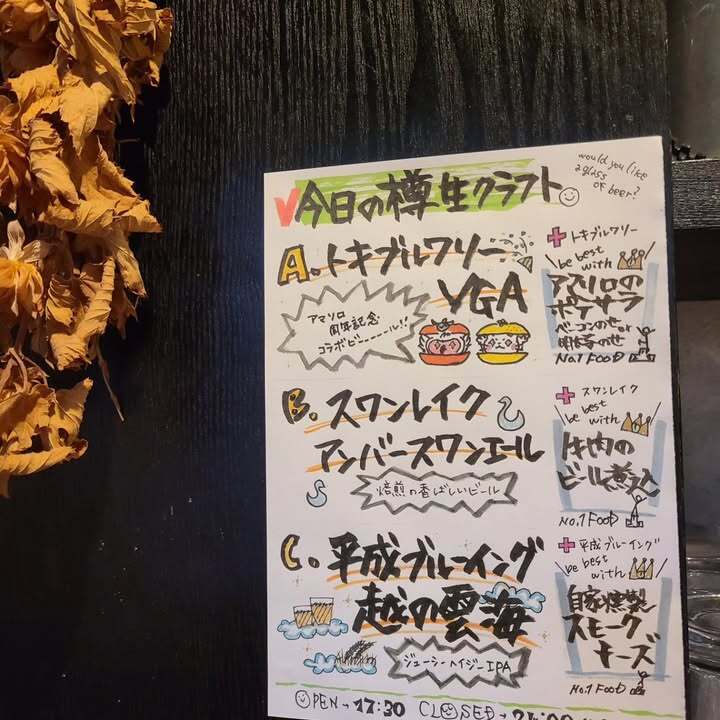 今日の樽生クラフト
would you like
a glass
of beer?
A.トキブルワリー
VGA
アマソロ
周年記念
コラボビーーーール!!
+トキブルワリー
be best
with
アマソロの
ポテサラ
ベーコンのせor
明太のせ
No.1 FOOD
B.スワンレイク
アンバースワンエール
焙煎の香ばしいビール
+スワンレイク
be best
with
牛肉の
ビール煮込
No.1 FOOD
C.平成ブルーイング
越の雲海
ジューシーヘイジーIPA
+平成ブルーイング
be best
with
自家燻製
スモーク
チーズ
No.1 FOOD
OPEN→17:30 CLOSED→